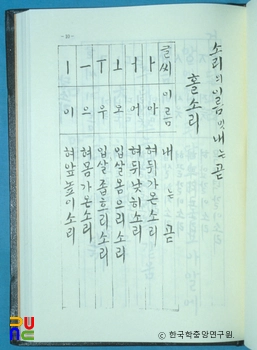 소리의 이름 밋 내는 곧
홀소리
글씨 이름 내는 곧
ㅏ 아 혀뒤가온소리
ㅓ 어 혀뒤낮히소리
ㅗ 오 입살몸으리소리
ㅜ 우 입살좁흐리소리
ㅡ 으 혀몸가온소리
ㅣ 이 혀앞높이소리
ⓒ 한국학중앙연구원